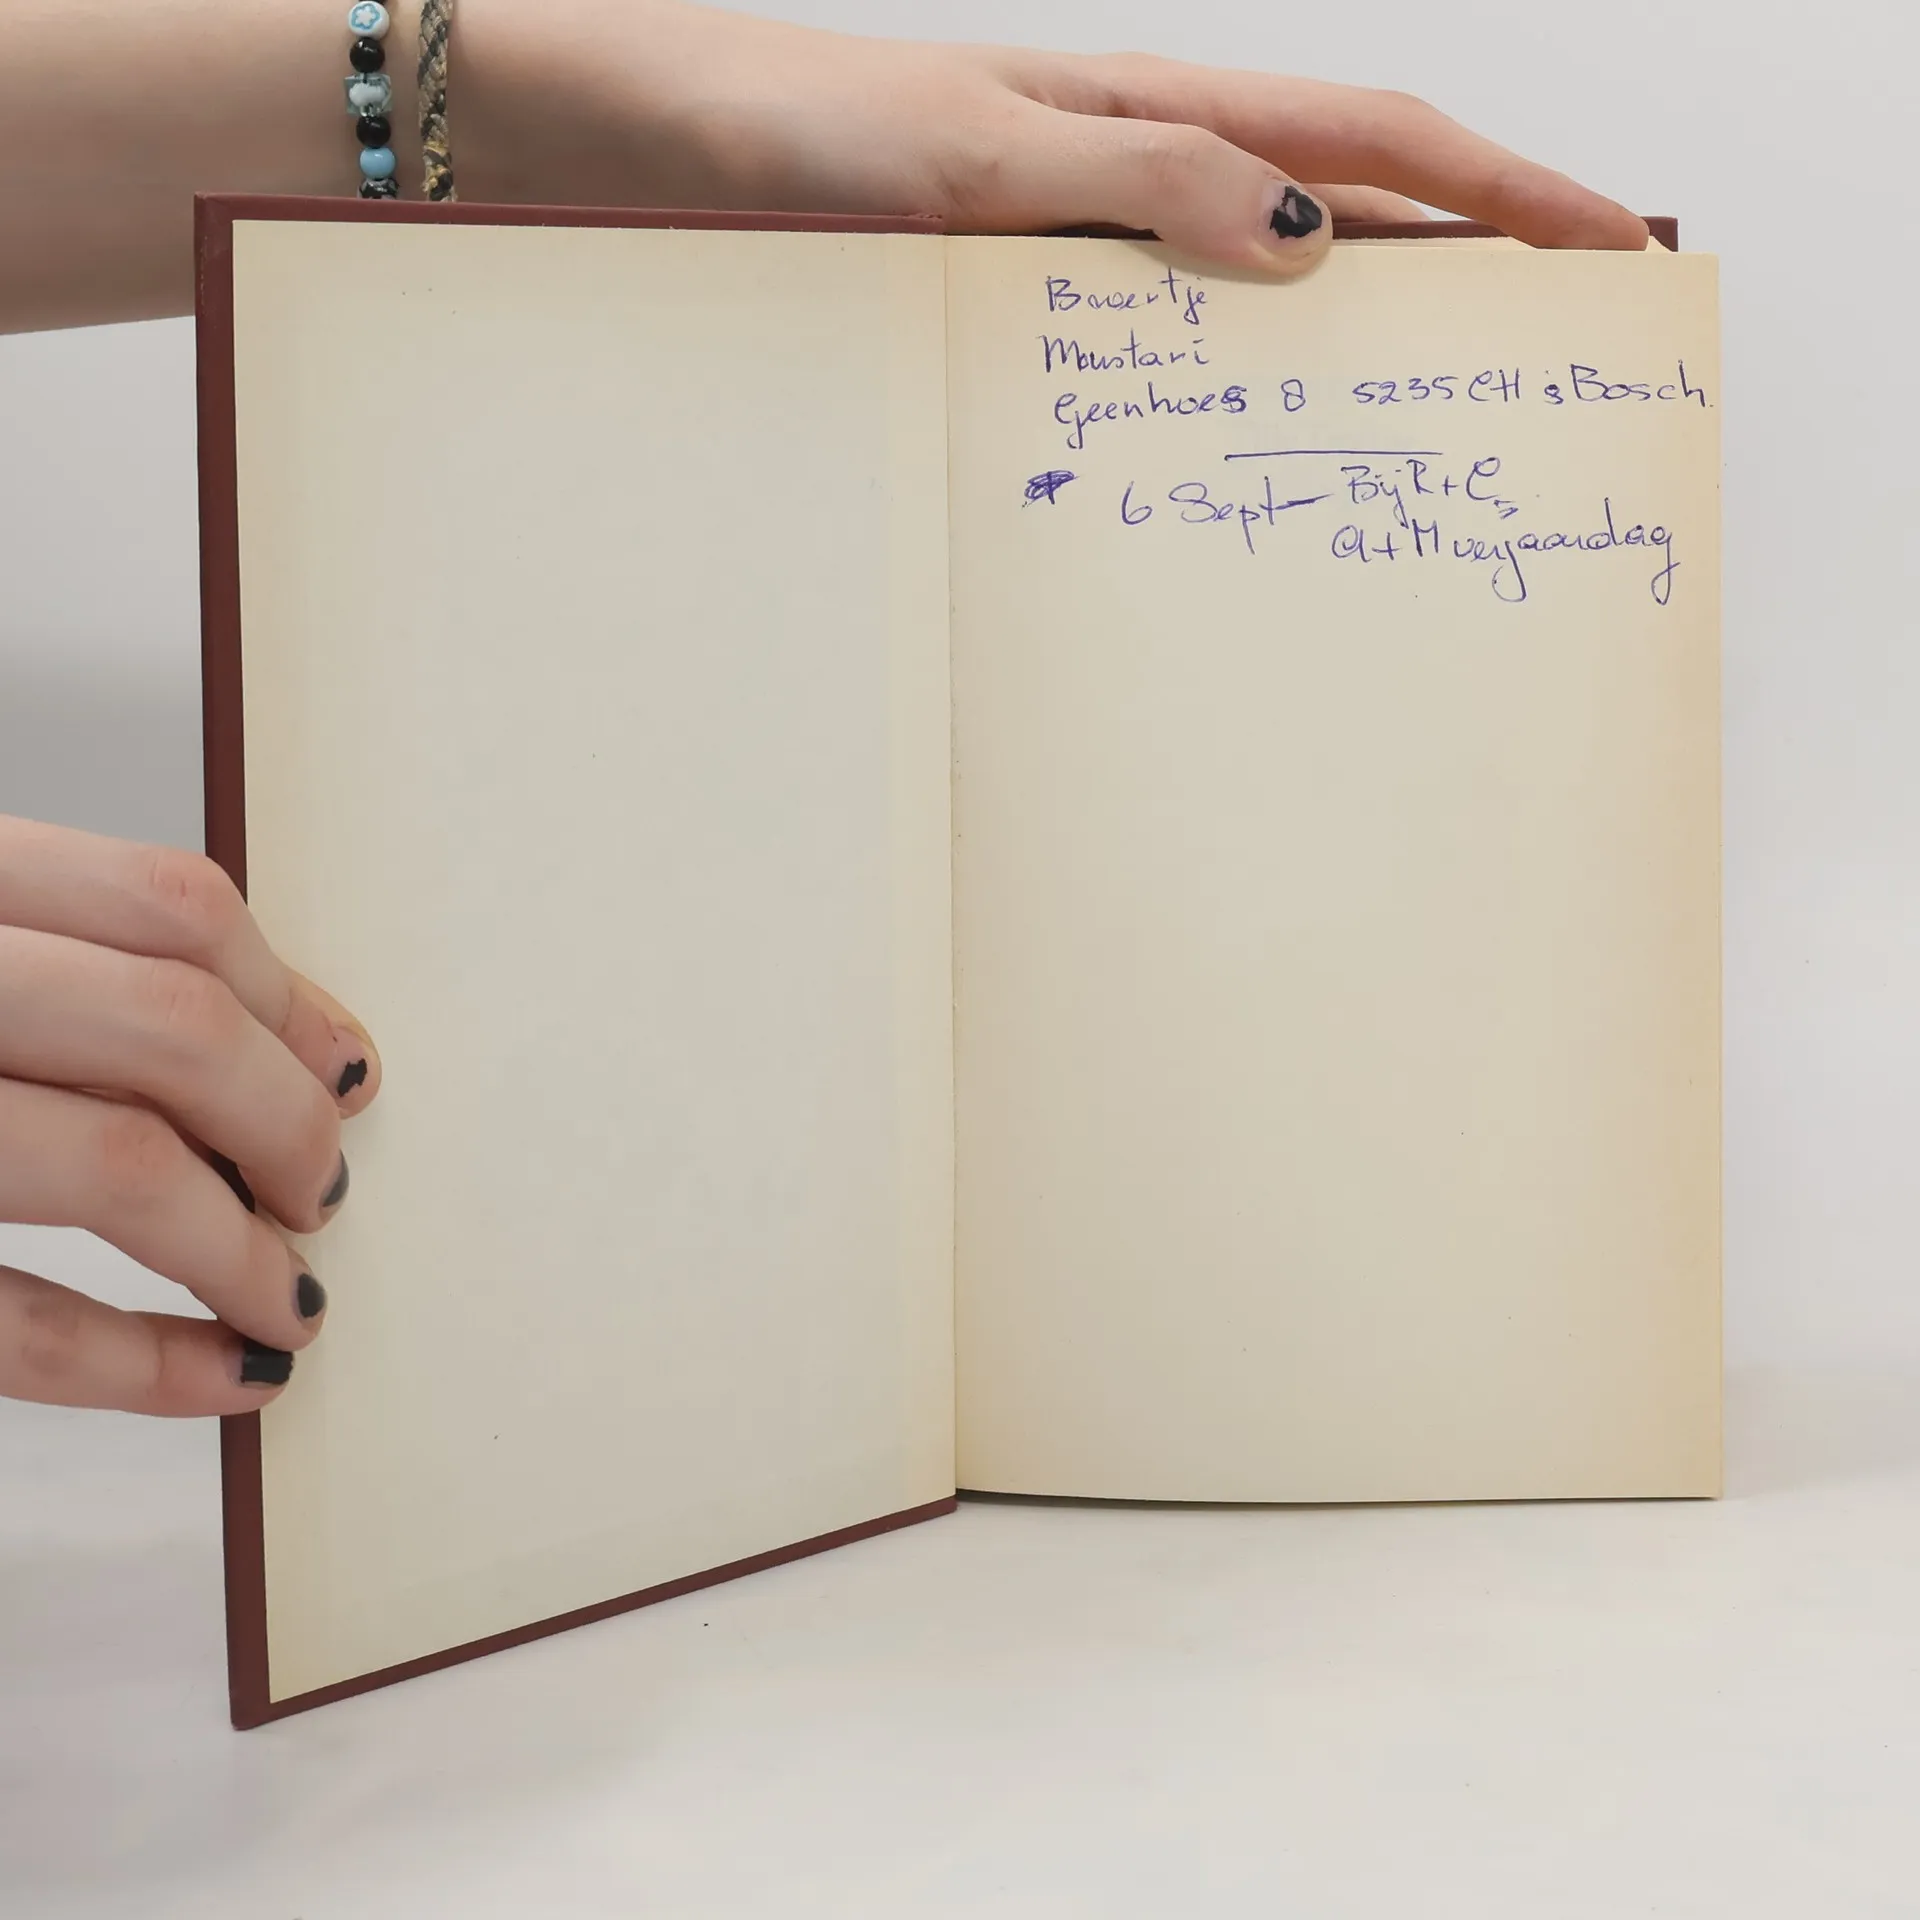 Broertje
Moustari
Geenhoes 8 5235 CH s Bosch.
6 Sept - Bij R + C
A + M verjaardag